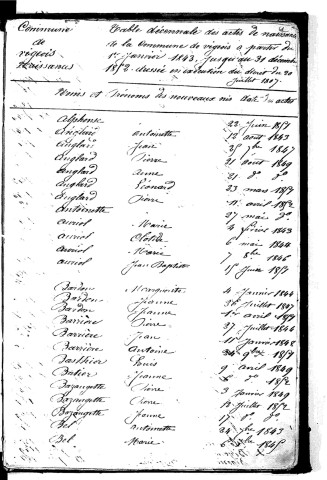 Commune
de
vigeois
Naissances
Table décennale des actes de naissances
de la Commune de vigeois à partir du
1er Janvier 1843, jusqu'au 31 décembre
1852 dressée en exécution du décret du 20
Juillet 1807.
Noms et Prénoms des nouveaux nés Date des actes
Alphonse 22 Juin 1851
antoinette 12 août 1843
anglard Jean 1847
anglard Pierre 21 août 1849
anglard anne 21 do do
anglard Léonard 23 mars 1852
anglard Pierre 11 avril 1852
antoinette 27 mai do
auriol Marie 4 février 1843
auriol Clotilde 6 mai 1844
auriol Marie 7 8bre 1846
auriol Jean Baptiste 15 Juin 1851
Bardon Marguerite 4 Janvier 1844
Bardon Jeanne Juillet 1847
Bardon Jeanne 1er avril
Barrière Pierre 27 Juillet 1844
Barrière Jean 11 Janvier
Barrière Antoine 9bre
Louis 9 avril 1849
Batier Jeanne
Bazangette Pierre 3 Janvier 1849
Bazangette Pierre Juillet 1852
Bazangette Jeanne 17 do do
Bel antoinette 1843
Bel Marie 1845